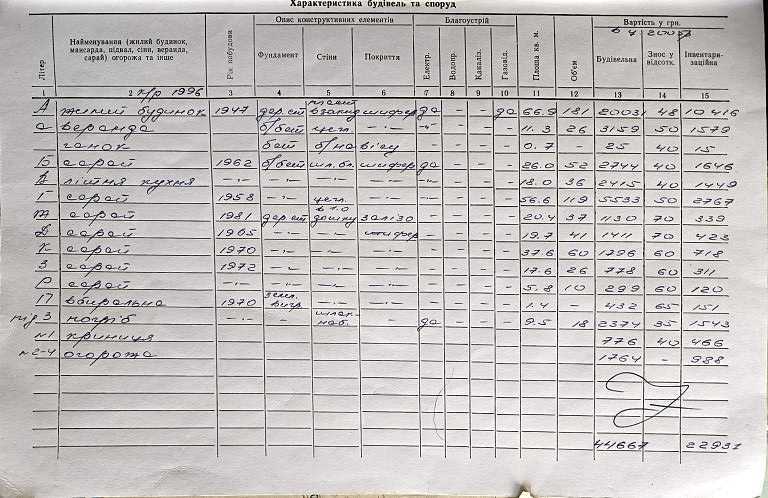 Характеристика будівель та споруд
Літер | Найменування (жилий будинок, мансарда, підвал, сіни, веранда, сарай) огорожа та інше | Рік побудови | Опис конструктивних елементів | Благоустрій | Площа кв. м. | Об'єм | Вартість у грн.
в ц 2005
Фундамент | Стіни | Покриття | Електр. | Водопр. | Каналіз. | Газовід. | Будівельна | Знос у відсотк. | Інвентаризаційна
1 | 2 | 3 | 4 | 5 | 6 | 7 | 8 | 9 | 10 | 11 | 12 | 13 | 14 | 15
к/р 1996
А | жилий будинок | 1947 | дер ст | шифер | да | - | - | да | 66.9 | 181 | 20031 | 48 | 10416
а | веранда | б/бет | цегл. | -"- | -"- | - | - | - | 11.3 | 26 | 3159 | 50 | 1579
ганок | бет | б/навісу | - | - | - | - | 0.7 | - | 25 | 40 | 15
Б | сарай | 1962 | б/бет | шл. бл. | шифер | да | - | - | - | 26.0 | 52 | 2744 | 40 | 1646
В | літня кухня | -"- | -"- | -"- | -"- | - | - | - | - | 18.0 | 36 | 2415 | 40 | 1449
Г | сарай | 1958 | -"- | цегл. | -"- | - | - | - | - | 56.6 | 119 | 5533 | 50 | 2767
Ж | сарай | 1981 | дер ст | дошки | залізо | - | - | - | - | 20.4 | 37 | 1130 | 70 | 339
Д | сарай | 1965 | -"- | -"- | шифер | - | - | - | - | 19.7 | 41 | 1411 | 70 | 423
К | сарай | 1970 | -"- | -"- | -"- | - | - | - | - | 37.6 | 60 | 1796 | 60 | 718
З | сарай | 1972 | -"- | -"- | -"- | - | - | - | - | 17.6 | 26 | 778 | 60 | 311
сарай | -"- | -"- | -"- | -"- | - | - | - | - | 5.8 | 10 | 299 | 60 | 120
П | вбиральня | 1970 | земл. вигр. | -"- | -"- | - | - | - | - | 1.4 | - | 432 | 65 | 151
під З | погріб | -"- | - | шлак. наб. | - | да | - | - | - | 9.5 | 18 | 2374 | 35 | 1543
№1 | криниця | 776 | 40 | 466
№2-4 | огорожа | 1764 | - | 988
44667 | 22931